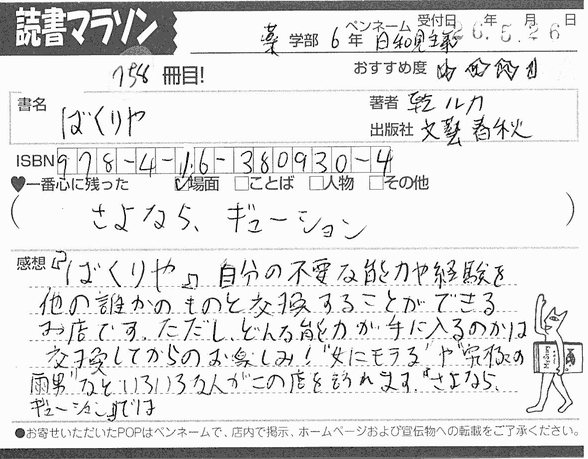 読書マラソン
薬 学部 6年 ペンネーム 日和見主義 受付日 年 月 日
26.5.26
758 冊目! おすすめ度 ☆☆☆☆
書名 ばくりや 著者 乾 ルカ
出版社 文藝春秋
ISBN 978-4-16-380930-4
♥一番心に残った ☑場面 □ことば □人物 □その他
( さよなら、ギューション )
感想 『ばくりや』 自分の不要な能力や経験を
他の誰かのものと交換することができる
お店です。ただし、どんな能力が手に入るのかは
交換してからのお楽しみ!"女にモテる"や"究極の
雨男"などいろいろな人がこの店を訪れます。『さよなら、
ギューション』では
●お寄せいただいたPOPはペンネームで、店内で掲示、ホームページおよび宣伝物への転載をご了承ください。